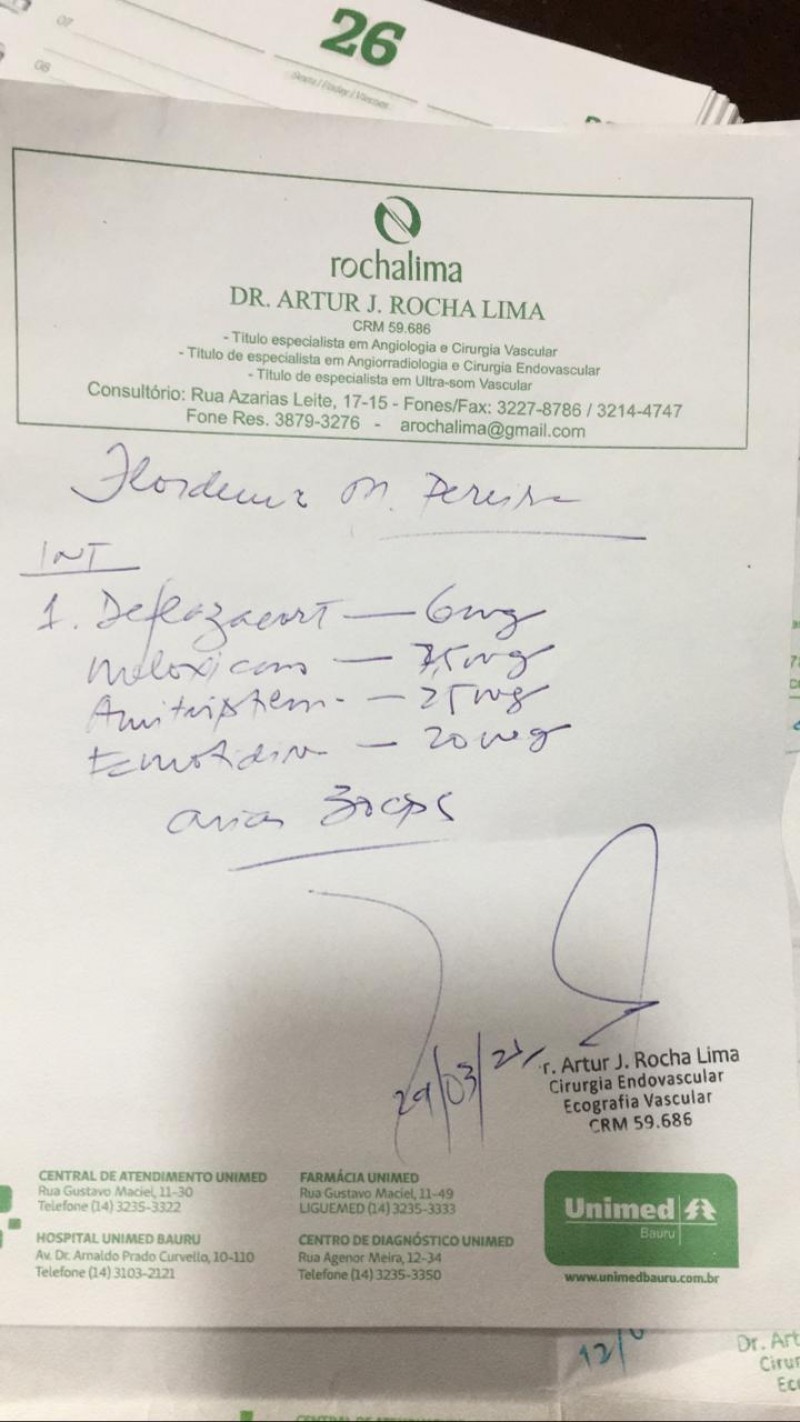 26
07
08
Sexta / Friday / Viernes
rochalima
DR. ARTUR J. ROCHA LIMA
CRM 59.686
- Título especialista em Angiologia e Cirurgia Vascular
- Título de especialista em Angiorradiologia e Cirurgia Endovascular
- Título de especialista em Ultra-som Vascular
Consultório: Rua Azarias Leite, 17-15 - Fones/Fax: 3227-8786 / 3214-4747
Fone Res. 3879-3276 - arochalima@gmail.com
M. Pereira
INT
1. Deflazacort — 6mg
Meloxicam — 7,5mg
— 25mg
Famotidina — 20mg
30cps
29/03/21
r. Artur J. Rocha Lima
Cirurgia Endovascular
Ecografia Vascular
CRM 59.686
CENTRAL DE ATENDIMENTO UNIMED
Rua Gustavo Maciel, 11-30
Telefone (14) 3235-3322
HOSPITAL UNIMED BAURU
Av. Dr. Arnaldo Prado Curvello, 10-110
Telefone (14) 3103-2121
FARMÁCIA UNIMED
Rua Gustavo Maciel, 11-49
LIGUEMED (14) 3235-3333
CENTRO DE DIAGNÓSTICO UNIMED
Rua Agenor Meira, 12-34
Telefone (14) 3235-3350
Unimed
Bauru
www.unimedbauru.com.br
12/
Dr. Art
Cirur
Ec